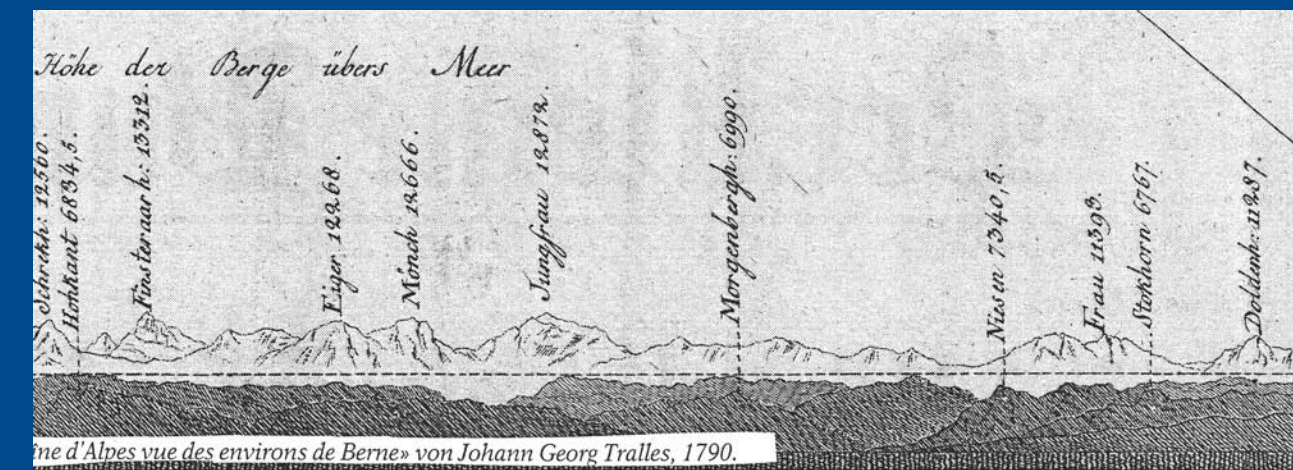 Höhe der Berge übers Meer
Schrekh: 12560.
Hohkant 6834,5.
Finsteraarh: 13312.
Eiger 12268.
Mönch 12666.
Jungfrau 12872.
Morgenbergh: 6990.
Niesen 7340,5.
Frau 11393.
Stokhorn 6767.
Doldenh: 11287.
ine d'Alpes vue des environs de Berne» von Johann Georg Tralles, 1790.